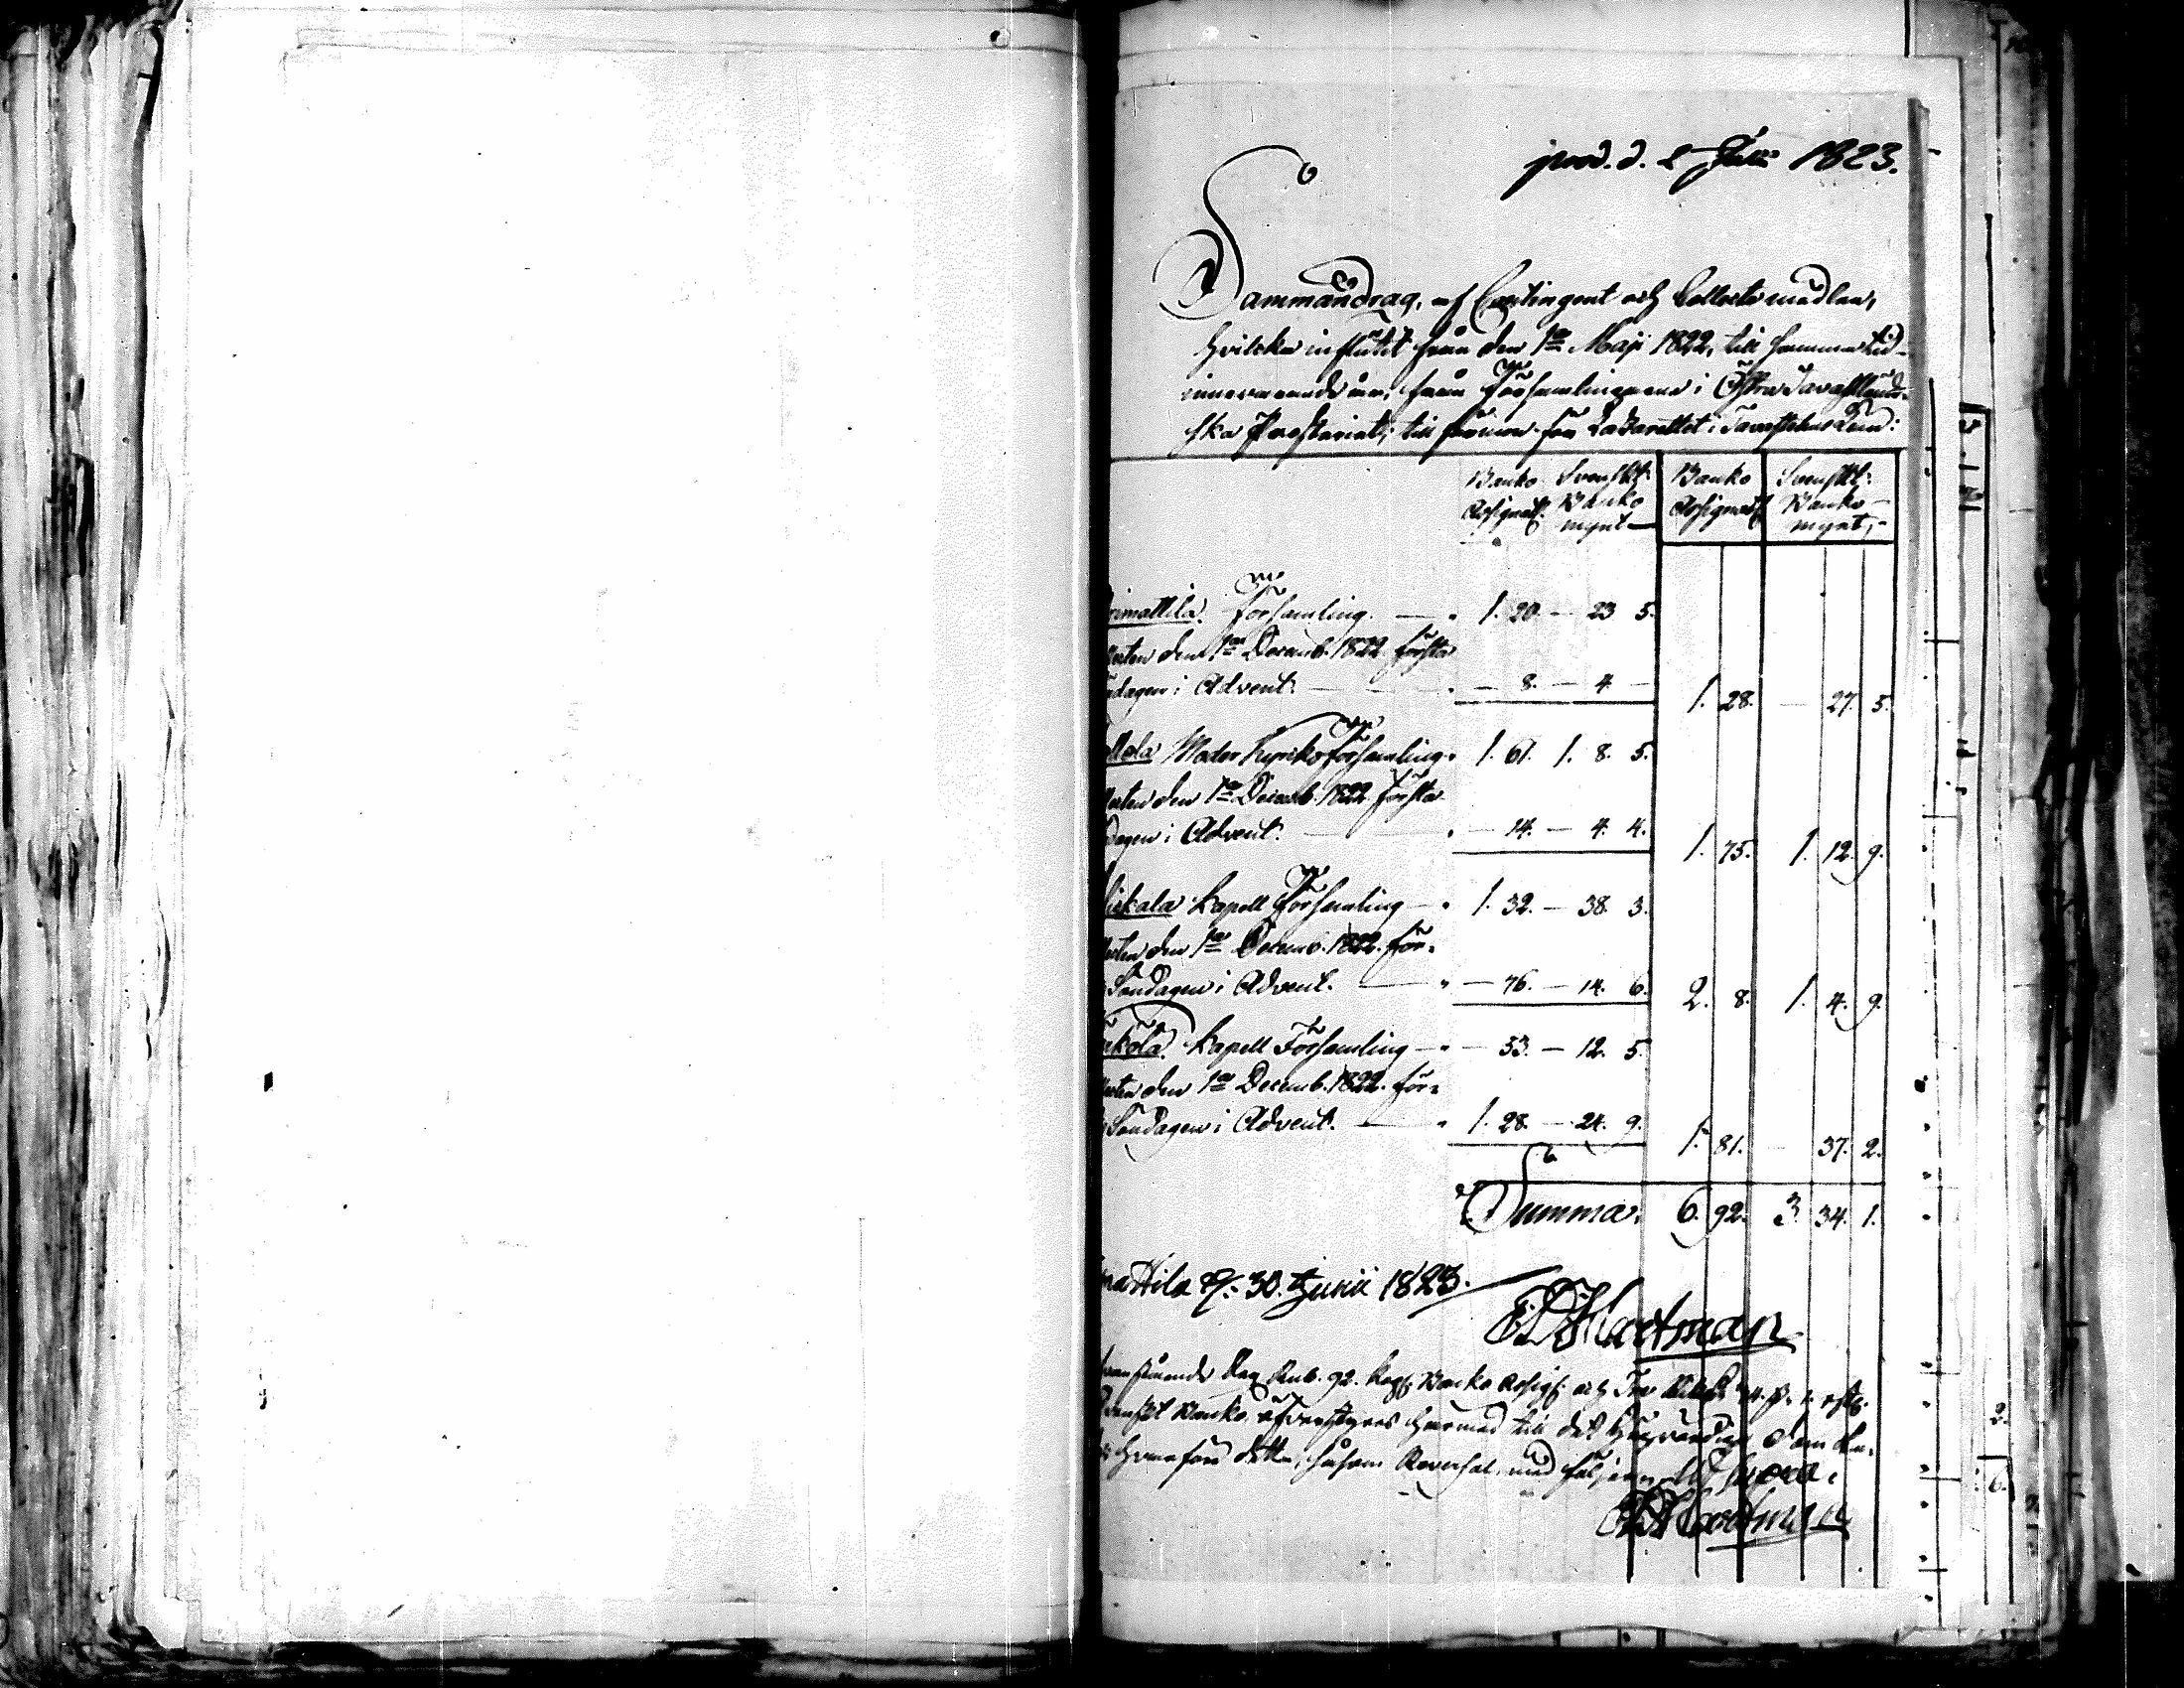 prod. d. 2 Julii 1823.
Sammandrag, af Contingent och Collecte medlen,
hvilcka influtit från den 1sta Maji 1822, till samma tid
innevarande år, från Församlingarne i Östra Tavastländ-
ska Prosteriet, till förmon för Lazarettet i Tavastehus Län:
Banko Assignatr. Svenskt Banko mynt Banko Assignatr Svenskt Banko mynt,
rimattila Församling. — 1. 20. — 23 5.
lecten den 1sta Decemb. 1822 första
ndagen i Advent. — 8. — 4. —
1. 28. — 27. 5.
llola Moder Kyrko församling. 1. 61. 1. 8. 5.
lecten den 1sta Decemb. 1822. första
dagen i Advent. — 14. — 4. 4.
1. 75. 1. 12. 9.
iskala Kapell Församling — 1. 32. — 38. 3.
lecten den 1sta Decemb. 1822. för-
Söndagen i Advent. — 76. — 14. 6.
2. 8. 1. 4. 9.
rkölä Kapell Församling — 53. — 12. 5.
lecten den 1sta Decemb. 1822. för-
Söndagen i Advent. — 1. 28. — 24. 9.
1. 81. — 37. 2.
Summa. 6. 92. 3. 34. 1.
mattila d. 30. Junii 1823.
Hartman
Rub. 92. kop. Banko Assign. och Tre
Svenskt Banko öfverstyres härmed till det Högvördige Dom
hvarföre detta, såsom Reversal, med följer. Ut supra.
Hartman